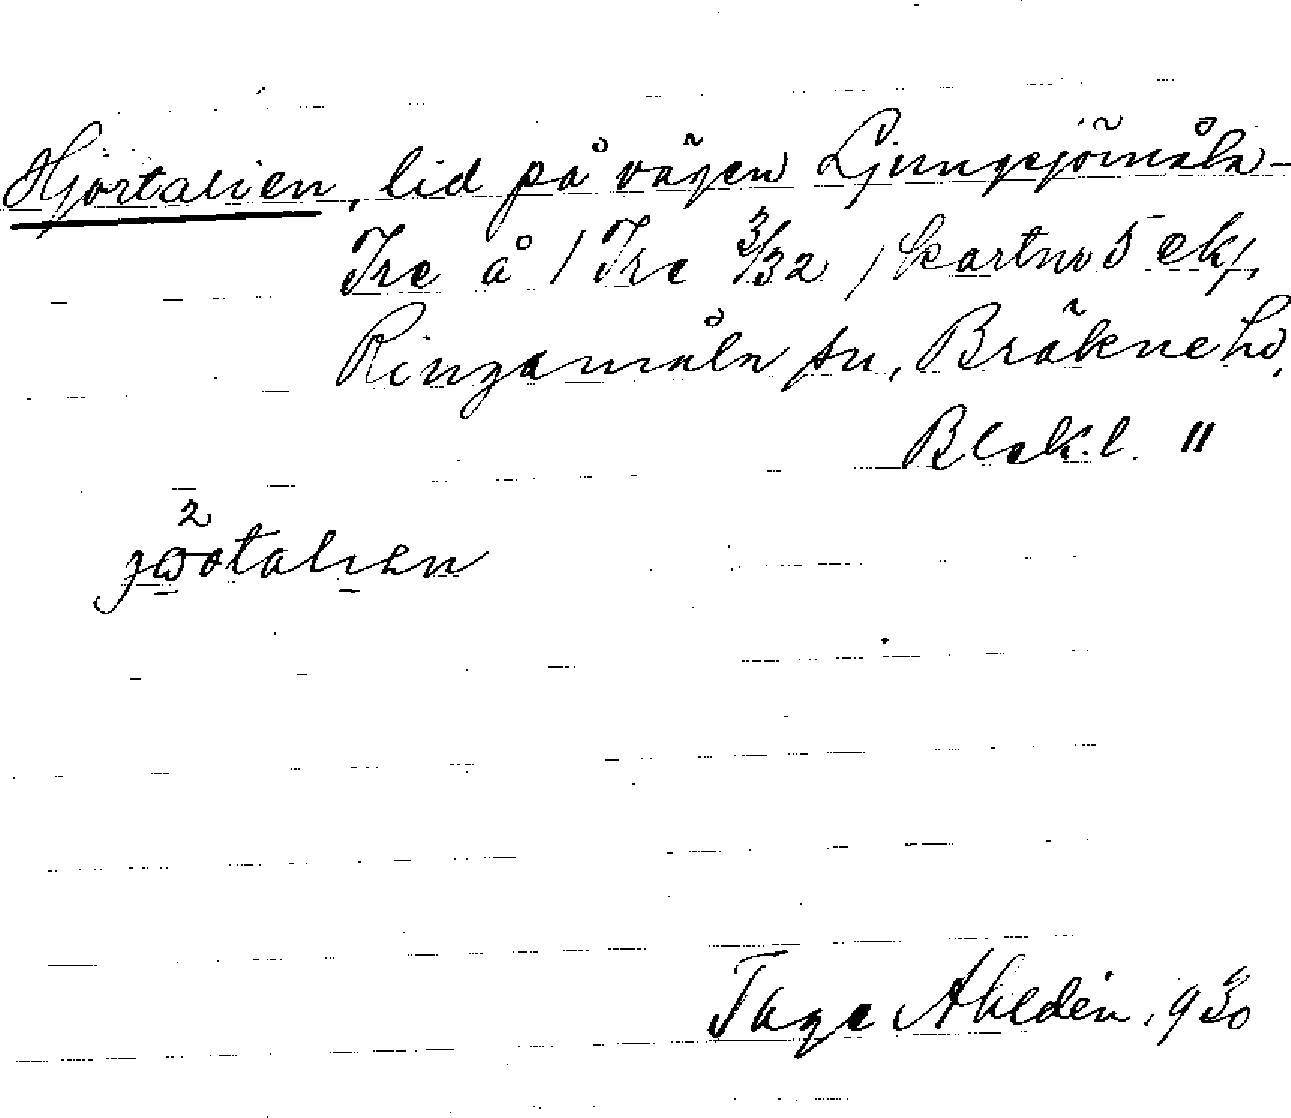 Hjortalien, lid på vägen Ljungsjömåla-
Ire å 1 Ire 3/32, kartno 5 ek,
Ringamåla sn, Bräkne hd,
Blek.l. "
Tage Ahldén, 930